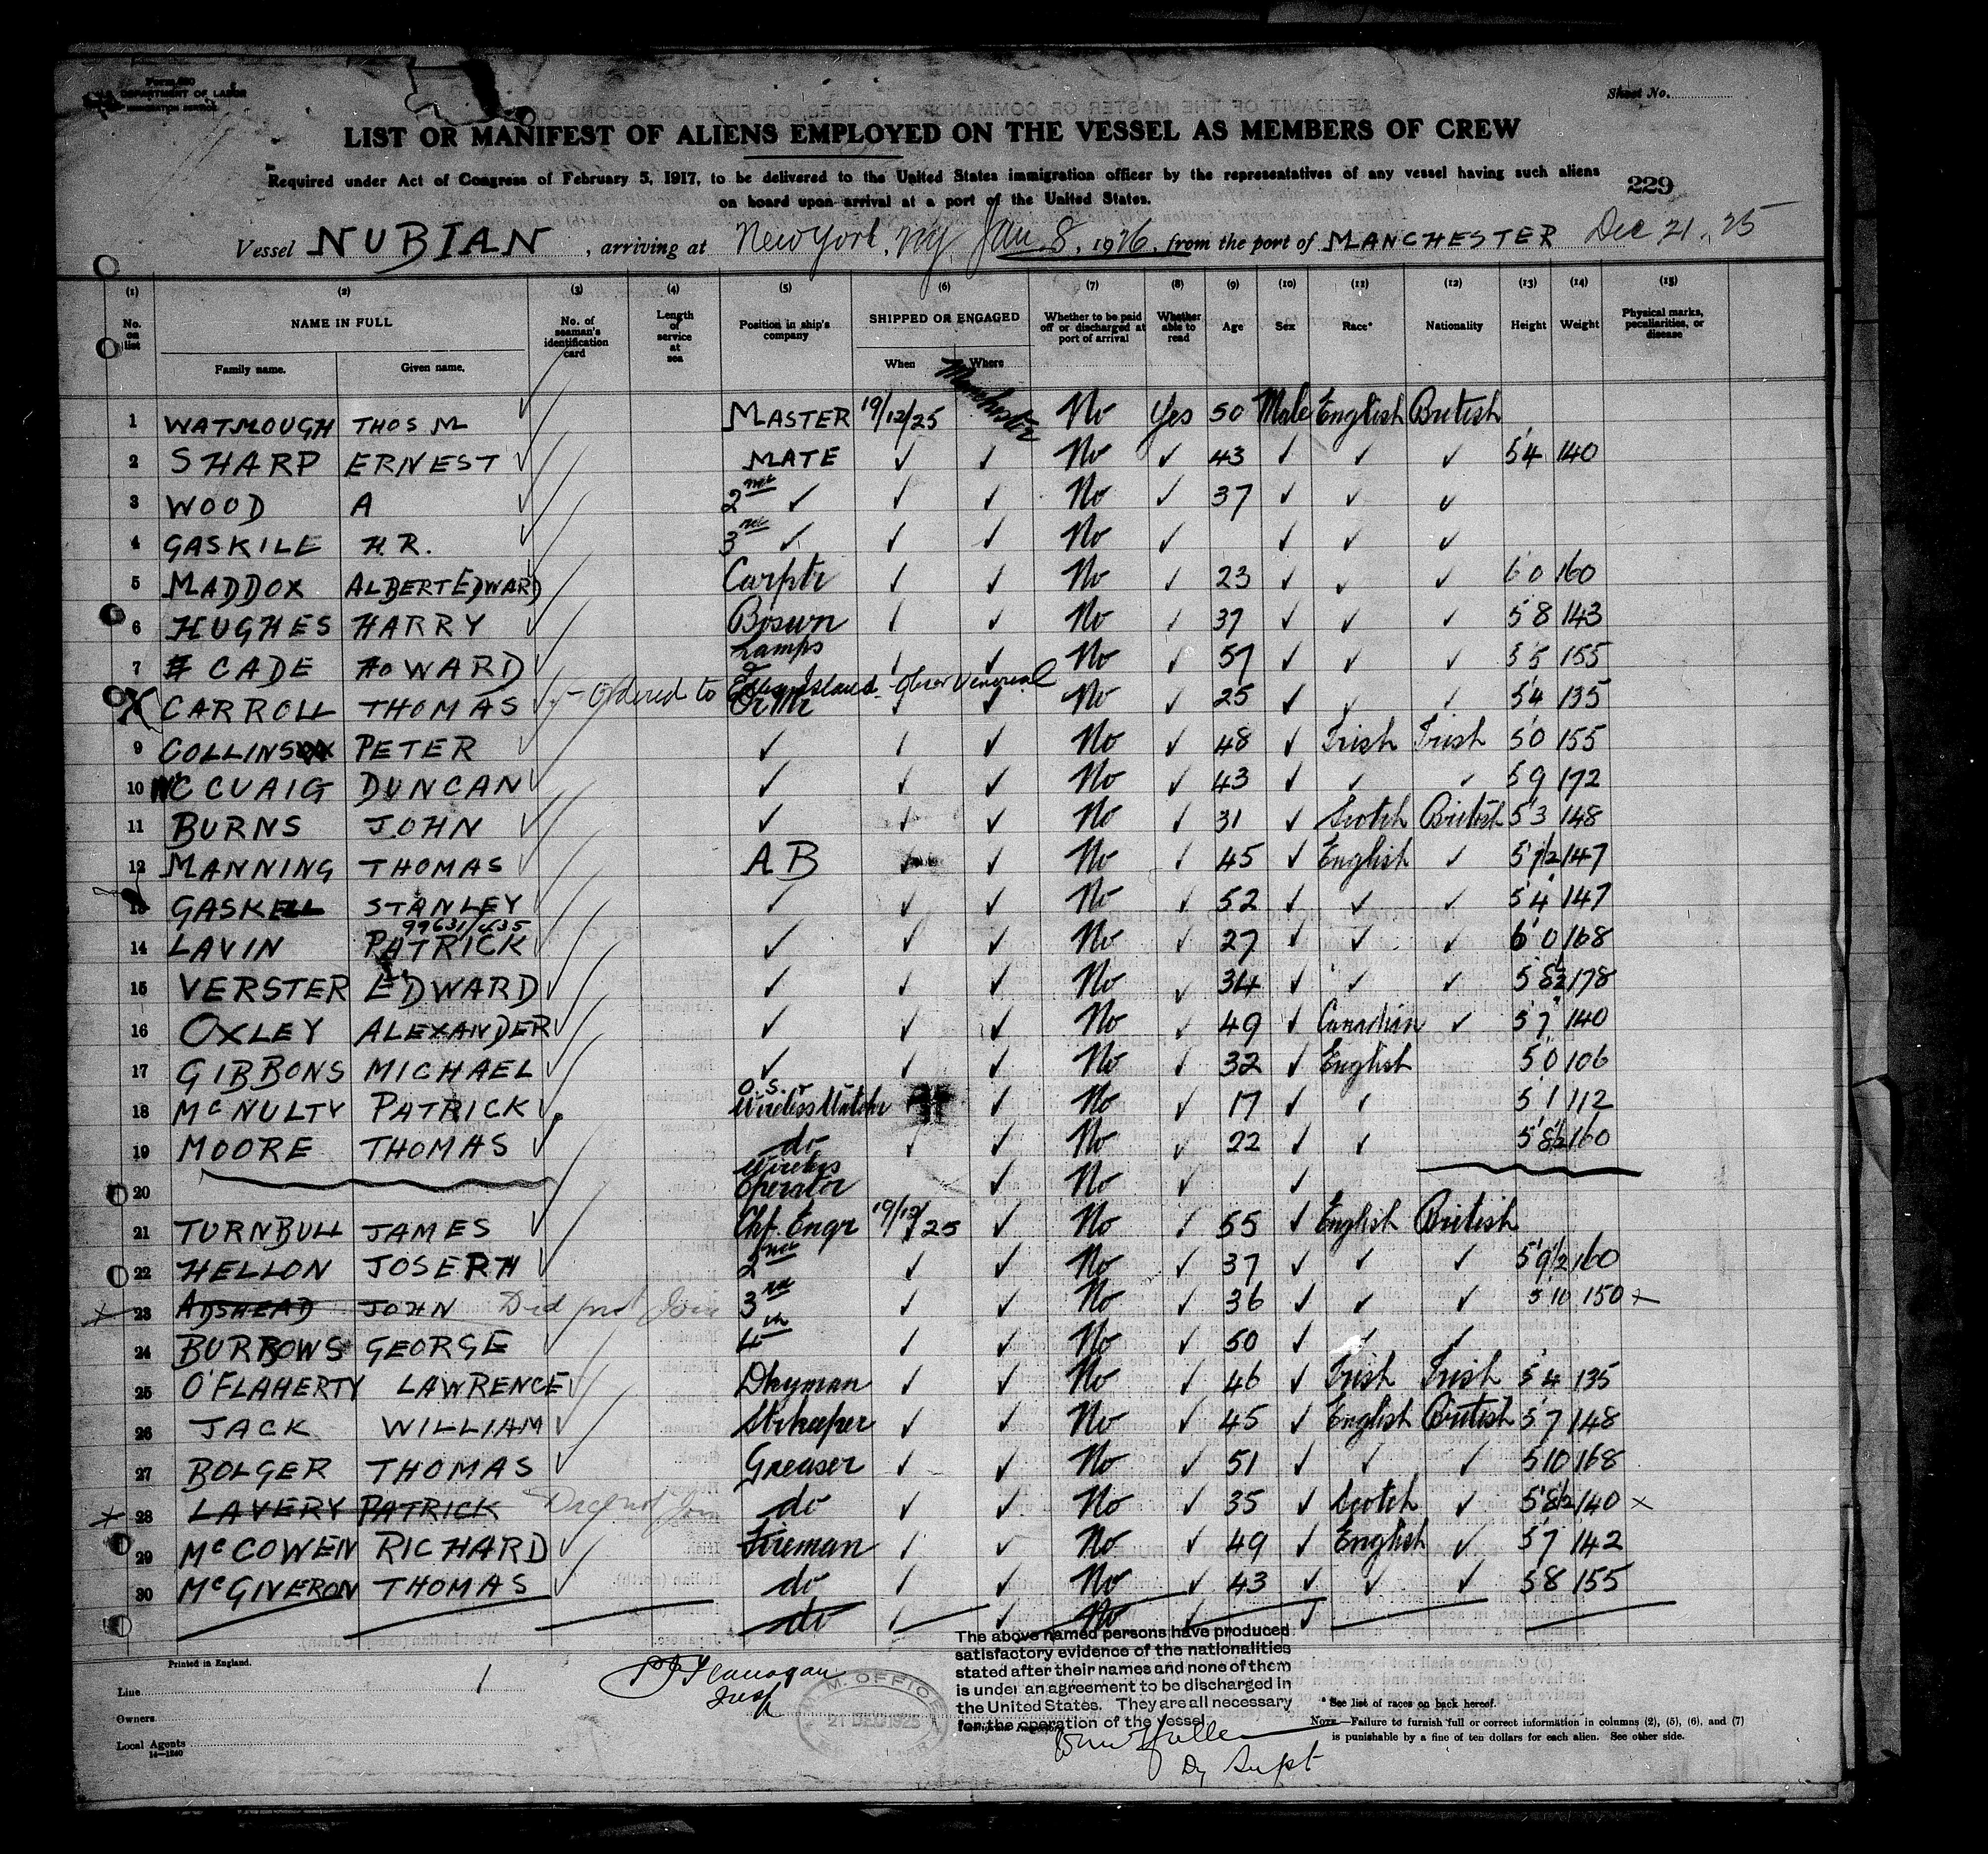 Form 680
DEPARTMENT OF LABOR
IMMIGRATION SERVICE
Sheet No.
LIST OR MANIFEST OF ALIENS EMPLOYED ON THE VESSEL AS MEMBERS OF CREW
Required under Act of Congress of February 5, 1917, to be delivered to the United States immigration officer by the representatives of any vessel having such aliens
on board upon arrival at a port of the United States.
229
Vessel NUBIAN, arriving at New York, NY, Jan 8, 1926, from the port of MANCHESTER Dec 21. 25
(1) (2) (3) (4) (5) (6) (7) (8) (9) (10) (11) (12) (13) (14) (15)
No. on list NAME IN FULL Family name. Given name. No. of seaman's identification card Length of service at sea Position in ship's company SHIPPED OR ENGAGED When Where Whether to be paid off or discharged at port of arrival Whether able to read Age Sex Race* Nationality Height Weight Physical marks, peculiarities, or disease
1 WATMOUGH THOS M ✓ MASTER 19/12/25 Manchester No Yes 50 Male English British
2 SHARP ERNEST ✓ MATE ✓ ✓ No ✓ 43 ✓ ✓ ✓ 5'4 140
3 WOOD A ✓ 2nd ✓ ✓ ✓ No ✓ 37 ✓ ✓ ✓
4 GASKILE H.R. ✓ 3rd ✓ ✓ ✓ No ✓ ✓ ✓ ✓
5 MADDOX ALBERT EDWARD Carptr ✓ ✓ No ✓ 23 ✓ ✓ ✓ 6 0 160
6 HUGHES HARRY ✓ Bosun ✓ ✓ No ✓ 37 ✓ ✓ ✓ 5 8 143
7 CADE HOWARD ✓ Lamps ✓ ✓ No ✓ 57 ✓ ✓ ✓ 5'5 155
X CARROLL THOMAS ✓ - Ordered to Ellis Island Venereal ✓ ✓ No ✓ 25 ✓ ✓ ✓ 5'4 135
9 COLLINS PETER ✓ ✓ ✓ ✓ No ✓ 48 ✓ Irish Irish 5'0 155
10 McCUAIG DUNCAN ✓ ✓ ✓ ✓ No ✓ 43 ✓ ✓ ✓ 5 9 172
11 BURNS JOHN ✓ ✓ ✓ ✓ No ✓ 31 ✓ Scotch British 5'3 148
12 MANNING THOMAS ✓ AB ✓ ✓ No ✓ 45 ✓ English ✓ 5'7 1/2 147
13 GASKELL STANLEY ✓ ✓ ✓ ✓ No ✓ 52 ✓ ✓ ✓ 5'4 147
99631/435
14 LAVIN PATRICK ✓ ✓ ✓ ✓ No ✓ 27 ✓ ✓ ✓ 6'0 168
15 VERSTER EDWARD ✓ ✓ ✓ ✓ No ✓ 34 ✓ ✓ ✓ 5 8 1/2 178
16 OXLEY ALEXANDER ✓ ✓ ✓ ✓ No ✓ 49 ✓ Canadian ✓ 5'7 140
17 GIBBONS MICHAEL ✓ ✓ ✓ ✓ No ✓ 32 ✓ English 5'0 106
18 McNULTY PATRICK ✓ O.S. & Wireless Watcher ✓ No ✓ 17 ✓ ✓ 5'1 112
19 MOORE THOMAS ✓ do ✓ ✓ No ✓ 22 ✓ ✓ 5'8 1/2 160
20 Wireless Operator ✓ No ✓ ✓
21 TURNBULL JAMES ✓ Chf. Engr 19/12/25 ✓ No ✓ 55 ✓ English British
22 HELLON JOSEPH ✓ 2nd ✓ ✓ No ✓ 37 ✓ ✓ ✓ 5'9 1/2 160
x 23 ADSHEAD JOHN Did not Join 3rd ✓ ✓ No ✓ 36 ✓ ✓ ✓ 5 10 150 x
24 BURROWS GEORGE 4th ✓ ✓ No ✓ 50 ✓ ✓ ✓
25 O'FLAHERTY LAWRENCE ✓ Dkyman ✓ ✓ No ✓ 46 ✓ Irish Irish 5 4 135
26 JACK WILLIAM ✓ Strkeeper ✓ ✓ No ✓ 45 ✓ English British 5'7 148
27 BOLGER THOMAS ✓ Greaser ✓ ✓ No ✓ 51 ✓ ✓ ✓ 5 10 168
x 28 LAVERY PATRICK Did not Join do ✓ ✓ No ✓ 35 ✓ Scotch ✓ 5'8 1/2 140 x
29 McCOWEN RICHARD ✓ Fireman ✓ ✓ No ✓ 49 ✓ English ✓ 5'7 142
30 McGIVERON THOMAS ✓ do ✓ ✓ No ✓ 43 ✓ ✓ ✓ 5 8 155
do ✓ ✓ No ✓ ✓
The above named persons have produced
satisfactory evidence of the nationalities
stated after their names and none of them
is under an agreement to be discharged in
the United States. They are all necessary
for the operation of the vessel
Printed in England.
Line 1
Owners
Local Agents
14—1240
P J Flanagan
Insp
M. M. OFFICE
21 DEC 1925
Dy Supt
* See list of races on back hereof.
NOTE.—Failure to furnish full or correct information in columns (2), (5), (6), and (7)
is punishable by a fine of ten dollars for each alien. See other side.